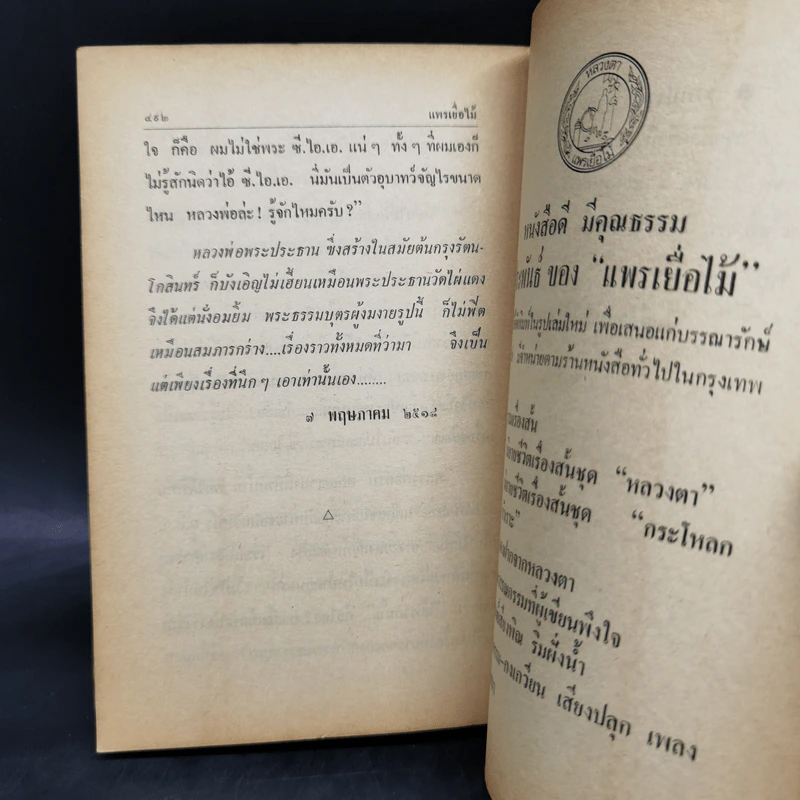 ๔๙๒
แพรเยื่อไม้
ใจ ก็คือ ผมไม่ใช่พระ ซี.ไอ.เอ. แน่ ๆ ทั้ง ๆ ที่ผมเองก็
ไม่รู้สักนิดว่าไอ้ ซี.ไอ.เอ. นี่มันเป็นตัวอุบาทว์จัญไรขนาด
ไหน หลวงพ่อล่ะ! รู้จักไหมครับ?”
หลวงพ่อพระประธาน ซึ่งสร้างในสมัยต้นกรุงรัตน-
โกสินทร์ ก็บังเอิญไม่เฮี้ยนเหมือนพระประธานวัดไผ่แดง
จึงได้แต่นั่งอมยิ้ม พระธรรมบุตรผู้งมงายรูปนี้ ก็ไม่พี่ต
เหมือนสมภารกร่าง....เรื่องราวทั้งหมดที่ว่ามา จึงเป็น
แต่เพียงเรื่องที่นึก ๆ เอาเท่านั้นเอง........
๗ พฤษภาคม ๒๕๑๘
หลวงตา
แพรเยื่อไม้
หนังสือดี มีคุณธรรม
ของ “แพรเยื่อไม้”
ในรูปเล่มใหม่ เพื่อเสนอแก่บรรณารักษ์
จำหน่ายตามร้านหนังสือทั่วไปในกรุงเทพ
เรื่องสั้น
ชีวิตเรื่องสั้นชุด “หลวงตา”
ชีวิตเรื่องสั้นชุด “กระโหลก
จากหลวงตา
ที่ผู้เขียนพึงใจ
ริมฝั่งน้ำ
เสียงปลุก เพลง